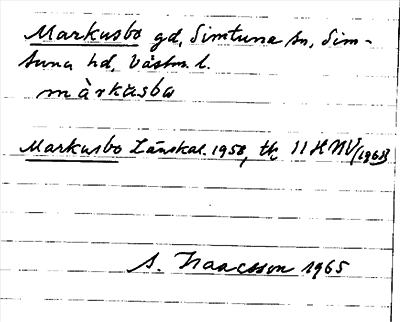 Markusbo gd, Simtuna sn, Sim-
tuna hd, Västm. l.
màrkusbo
Markusbo Länskal. 1958, tk 11H NV (1963)
S. Isaacsson 1965